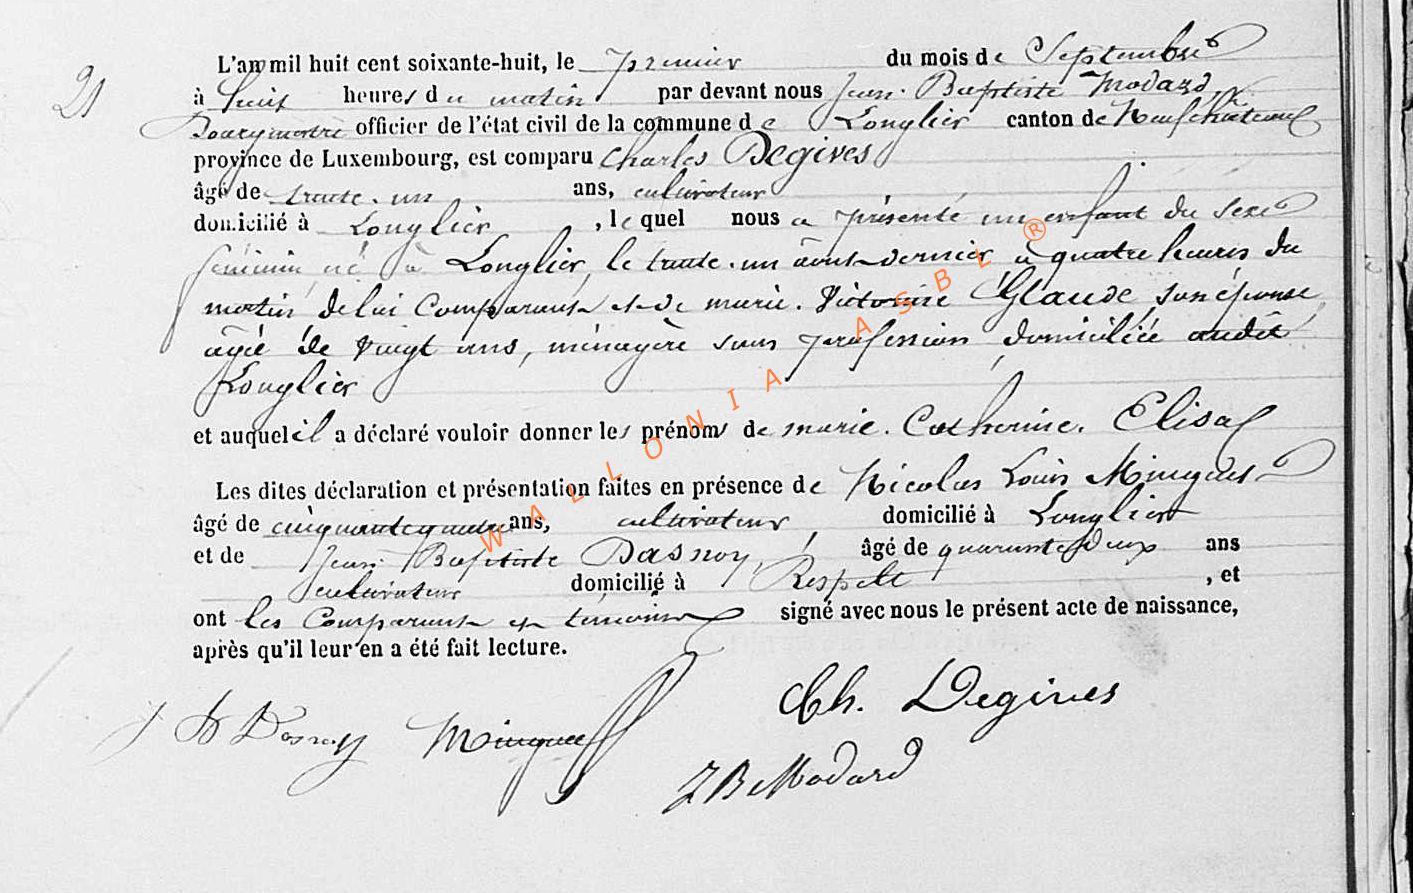 21
L'an mil huit cent soixante-huit, le premier du mois de Septembre
à huit heures du matin par devant nous Jean. Baptiste Modard,
Bourgmestre officier de l'état civil de la commune de Longlier canton de Neufchâteau
province de Luxembourg, est comparu Charles Degives
âgé de trente. un ans, cultivateur
domicilié à Longlier, lequel nous a présenté un enfant du sexe
féminin né à Longlier, le trente. un août dernier à quatre heures du
matin de lui Comparant et de marie. Victorine Glaude, son épouse,
agée de vingt ans, ménagère sans profession, domiciliée audit
Longlier
et auquel il a déclaré vouloir donner les prénoms de marie. Catherine. Elisa
Les dites déclaration et présentation faites en présence de Nicolas Louis Minguet
âgé de cinquante quatre ans, cultivateur, domicilié à Longlier
et de Jean Baptiste Dasnoy, âgé de quarante deux ans
cultivateur domicilié à Respelt, et
ont les Comparant et témoins signé avec nous le présent acte de naissance,
après qu'il leur en a été fait lecture.
Ch. Degives
J B Dasnoy Minguet
J B Modard
WALLONIA ASBL ®